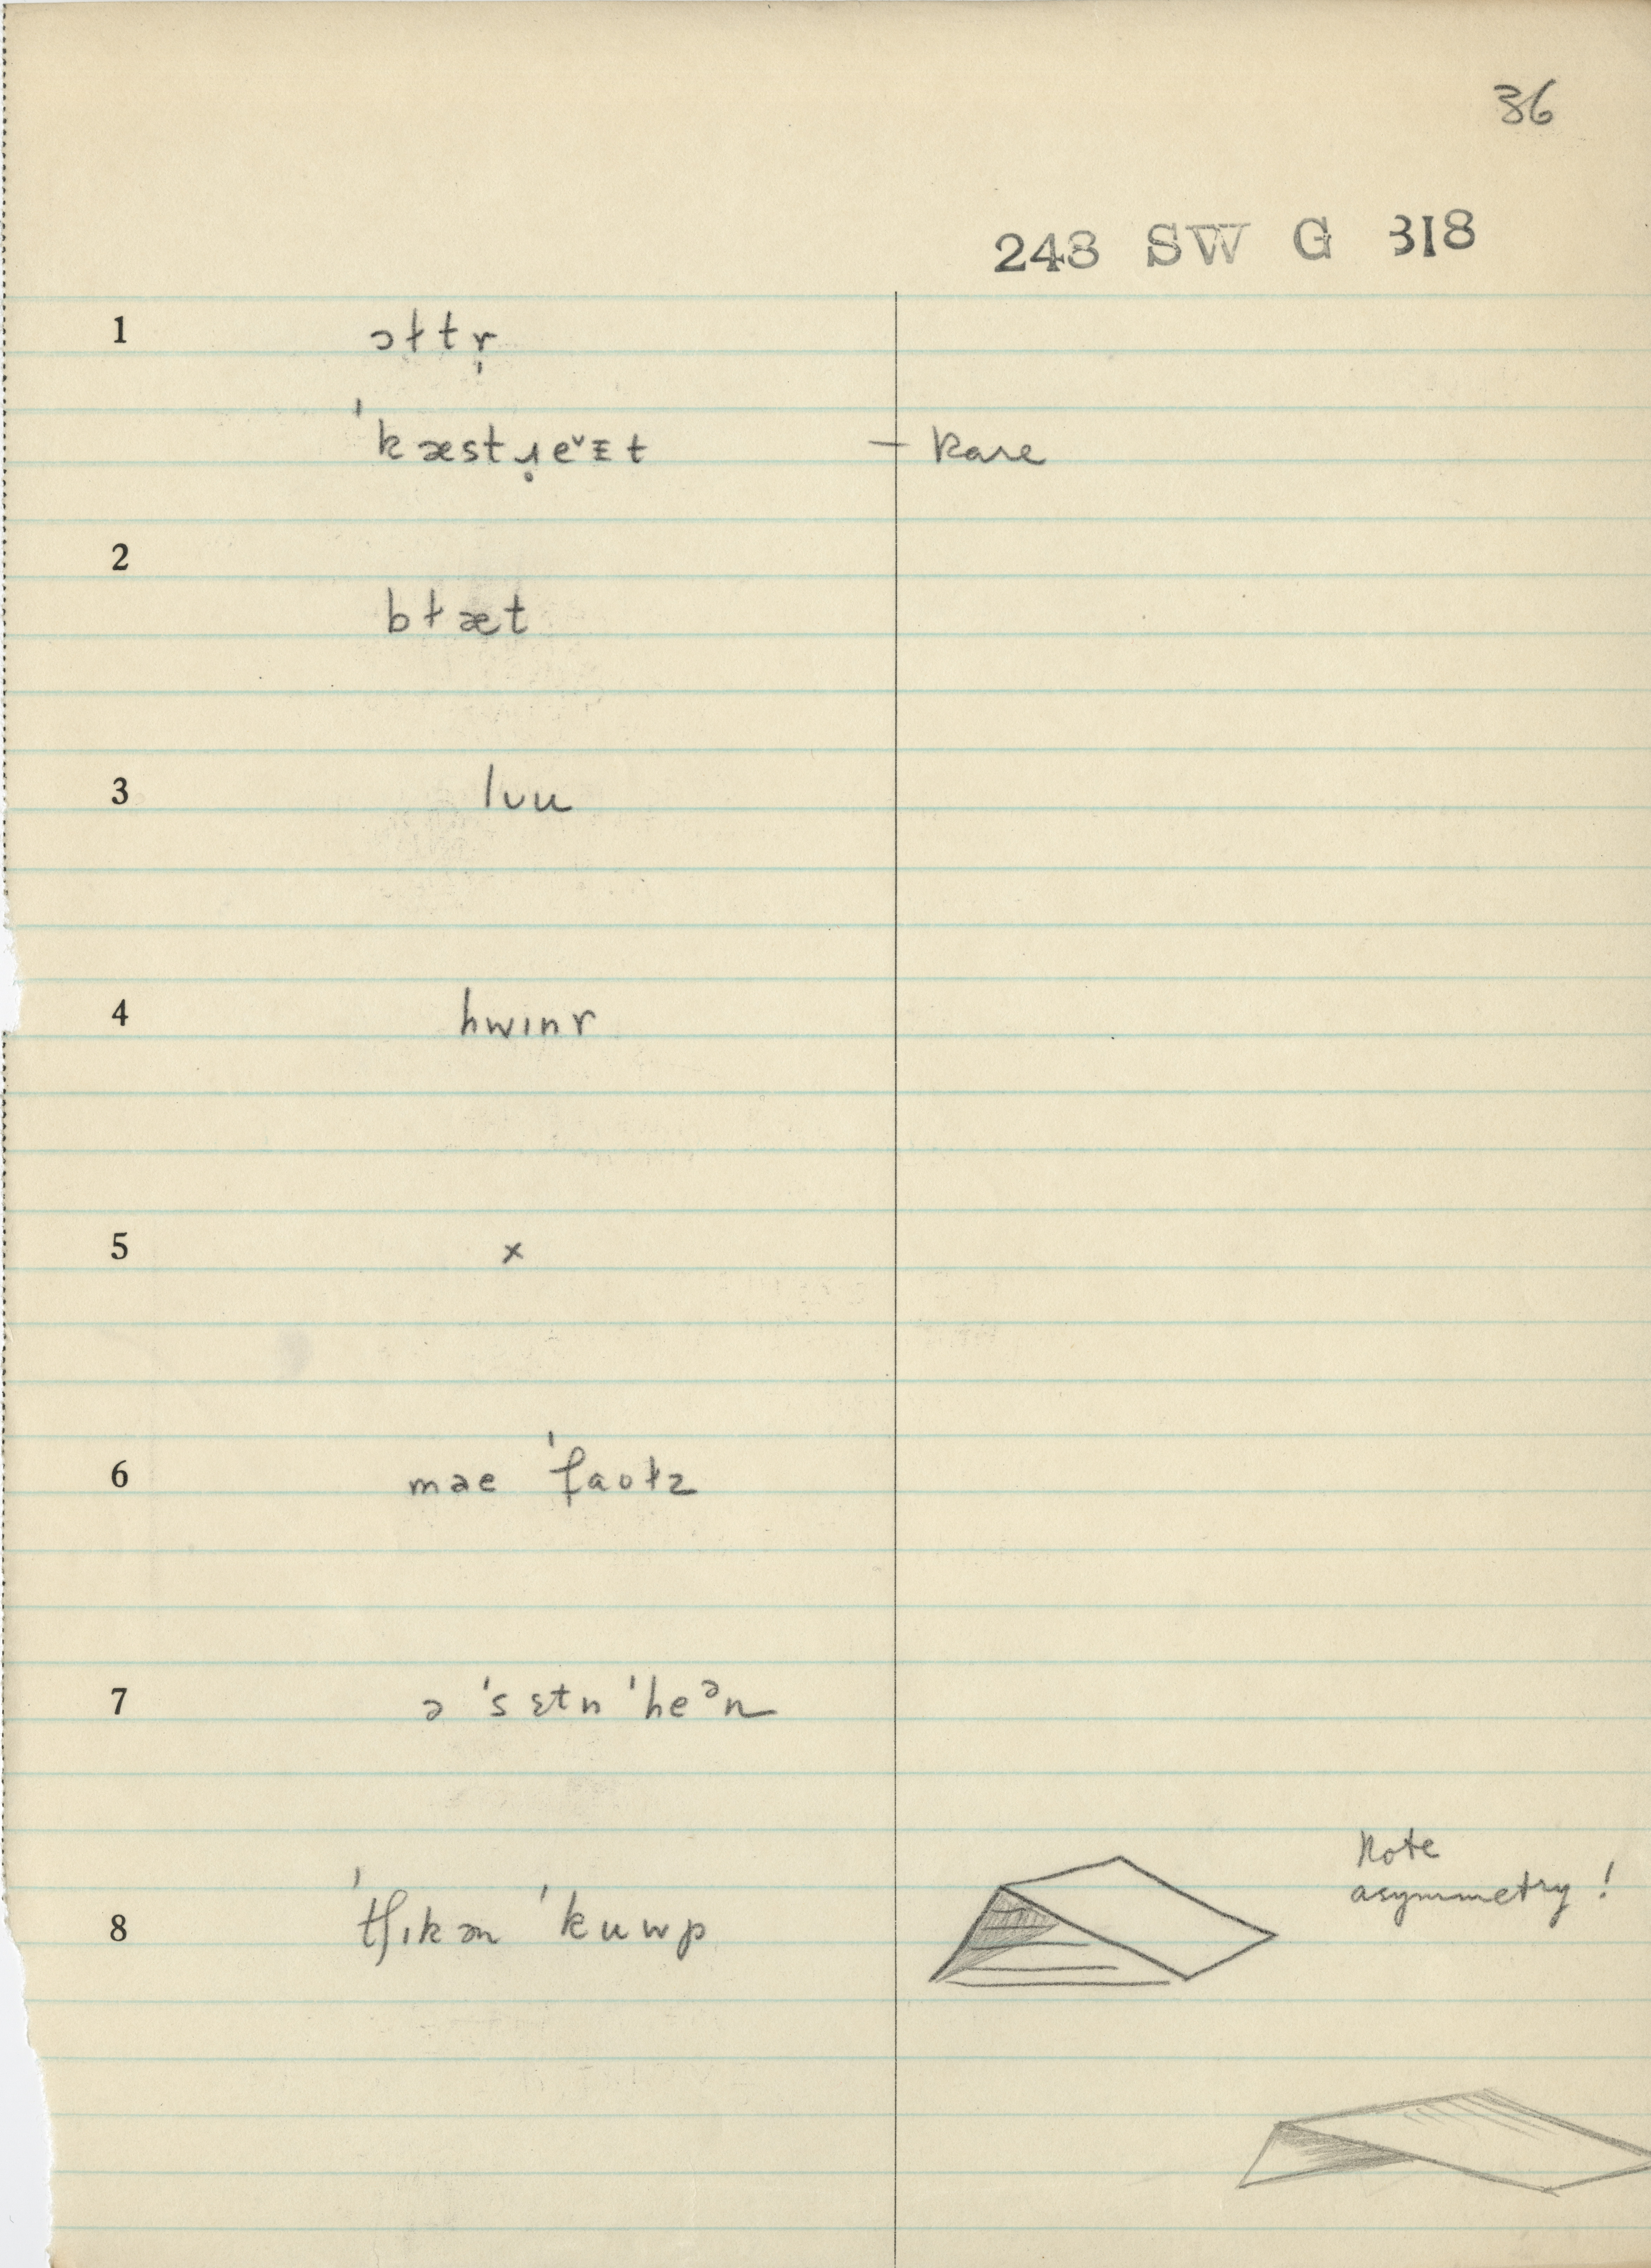 36
248 SW G 318
1 ɔɫtr̩
ˈkæstɹ̣eˇɪt — Rare
2
bɫæt
3 lʊu
4 hwɪnr
5 x
6 mae ˈfaʊɫz
7 ə ˈsɛtn ˈheᵊn
8 ˈtʃɪkən ˈkuwp
Note
asymmetry!